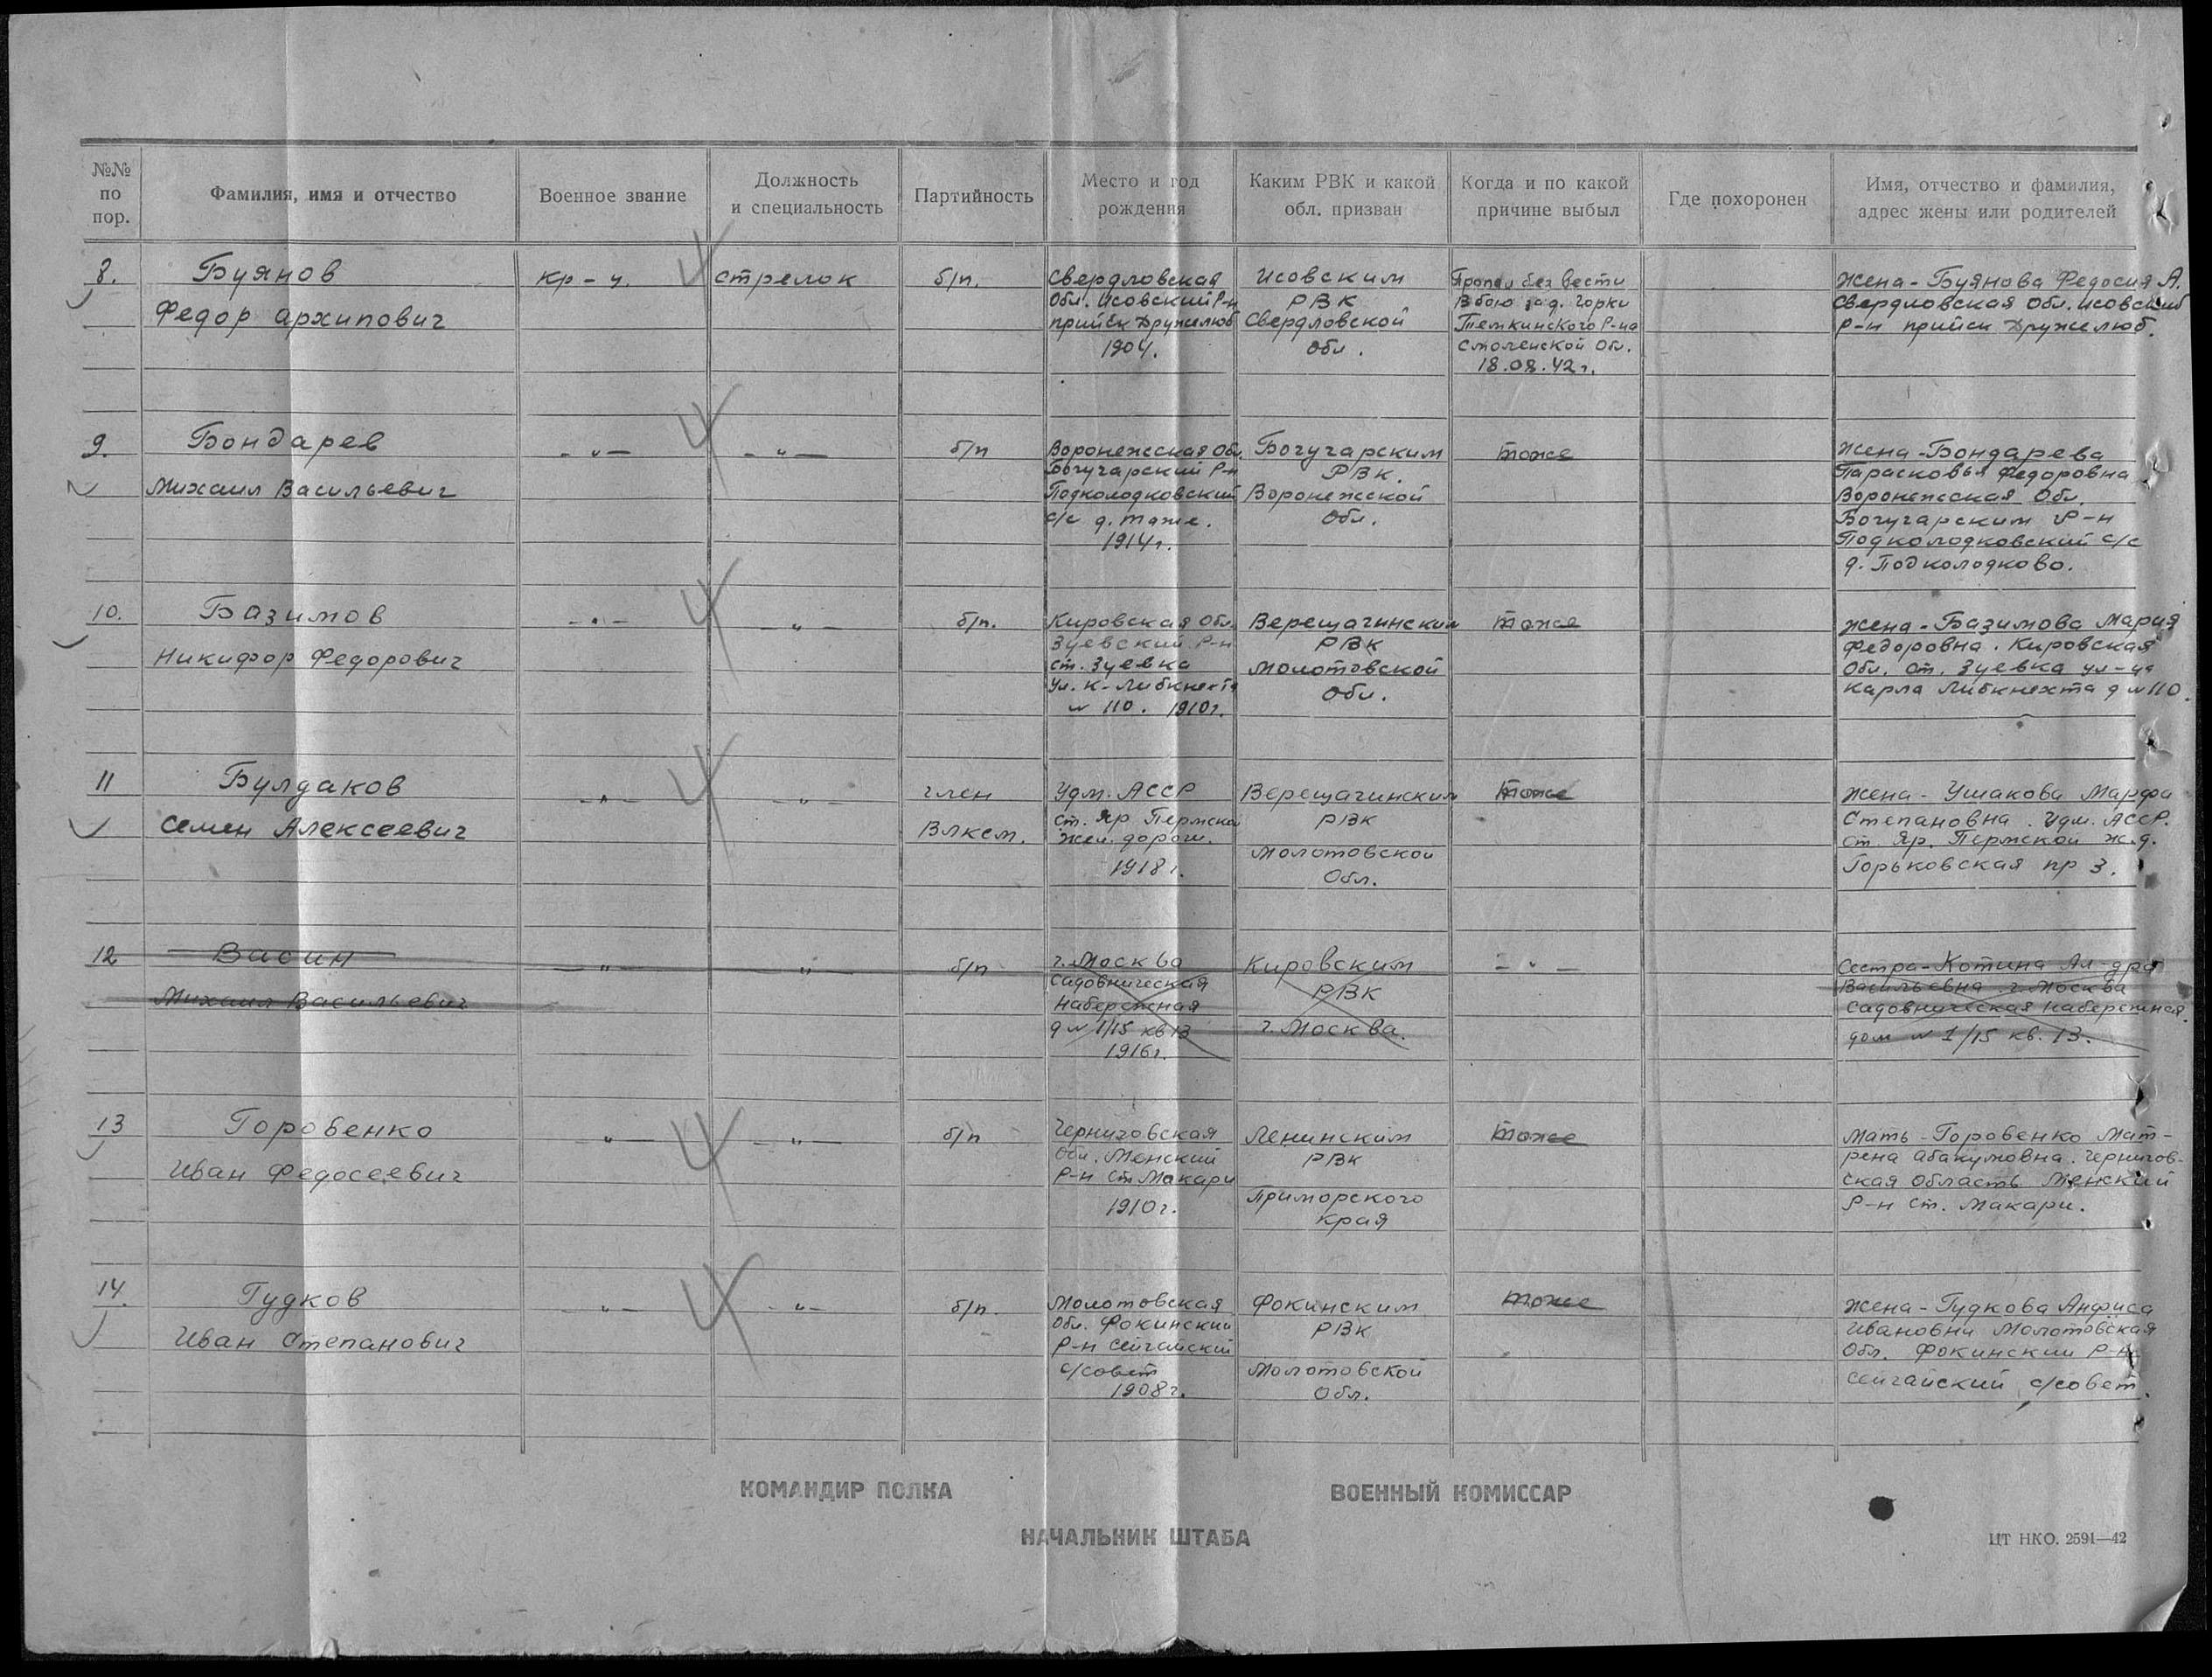 №№ по пор.
Фамилия, имя и отчество
Военное звание
Должность и специальность
Партийность
Место и год рождения
Каким РВК и какой обл. призван
Когда и по какой причине выбыл
Где похоронен
Имя, отчество и фамилия, адрес жены или родителей
8.
Буянов
Федор Архипович
кр-ц.
стрелок
б/п.
Свердловская
Обл. Исовский р-н
прииск Дружелюб
1904.
Исовским
РВК
Свердловской
Обл.
Пропал без вести
В бою за д. Горки
Темкинского р-на
Смоленской Обл.
18.08.42г.
Жена-Буянова Федосия А.
Свердловская Обл. Исовский
р-н прииск Дружелюб.
9.
Бондарев
Михаил Васильевич
-"-
-"-
б/п
Воронежская Обл.
Богучарский р-н
Подколодковский
с/с д. тоже.
1914г.
Богучарским
РВК.
Воронежской
Обл.
тоже
Жена-Бондарева
Парасковья Федоровна
Воронежская Обл.
Богучарским р-н
Подколодковский с/с
д. Подколодково.
10.
Базимов
Никифор Федорович
-"-
-"-
б/п.
Кировская Обл.
Зуевский р-н
ст. Зуевка
ул. К-Либкнехта
№ 110. 1910г.
Верещагинским
РВК
Молотовской
Обл.
тоже
Жена-Базимова Мария
Федоровна. Кировская
Обл. ст. Зуевка ул-ца
Карла Либкнехта д №110.
11
Булдаков
Семен Алексеевич
-"-
-"-
член
Влксм.
Удм. АССР
ст. Яр Пермской
жел. дороги.
1918г.
Верещагинским
РВК
Молотовской
Обл.
тоже
Жена- Ушакова Марфа
Степановна. Удм. АССР.
ст. Яр. Пермской ж.д.
Горьковская пр 3.
12
Васин
Михаил Васильевич
-"-
-"-
б/п
г. Москва
Садовническая
Набережная
д № 1/15 кв 13
1916г.
Кировским
РВК
г. Москва.
-"-
Сестра-Котина Ал-дра
Васильевна г. Москва
Садовническая набережная.
дом № 1/15 кв. 13.
13
Горовенко
Иван Федосеевич
-"-
-"-
б/п
Черниговская
Обл. Менский
р-н ст Макари
1910г.
Ленинским
РВК
Приморского
края
тоже
Мать-Горовенко Мат-
рена Абакумовна. Чернигов-
ская область Менский
р-н ст. Макари.
14.
Гудков
Иван Степанович
-"-
-"-
б/п.
Молотовская
Обл. Фокинский
р-н Сайгайский
с/совет
1908г.
Фокинским
РВК
Молотовской
Обл.
тоже
Жена-Гудкова Анфиса
Ивановни Молотовская
Обл. Фокинский р-н
Сайгайский с/совет.
КОМАНДИР ПОЛКА
ВОЕННЫЙ КОМИССАР
НАЧАЛЬНИК ШТАБА
ЦТ НКО. 2591—42